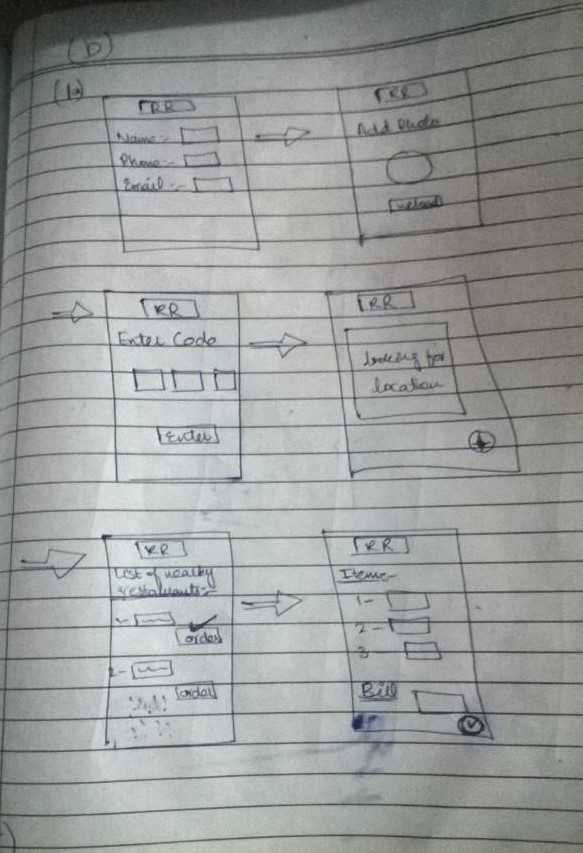 (b)
(1a)
RR
Name:-
Phone:-
Email:-
RR
Add Photo
upload
RR
Enter Code
Enter
RR
looking for
location
RR
List of nearby
restaurants:-
1-
order
2-
order
RR
Items-
1-
2-
3
Bill